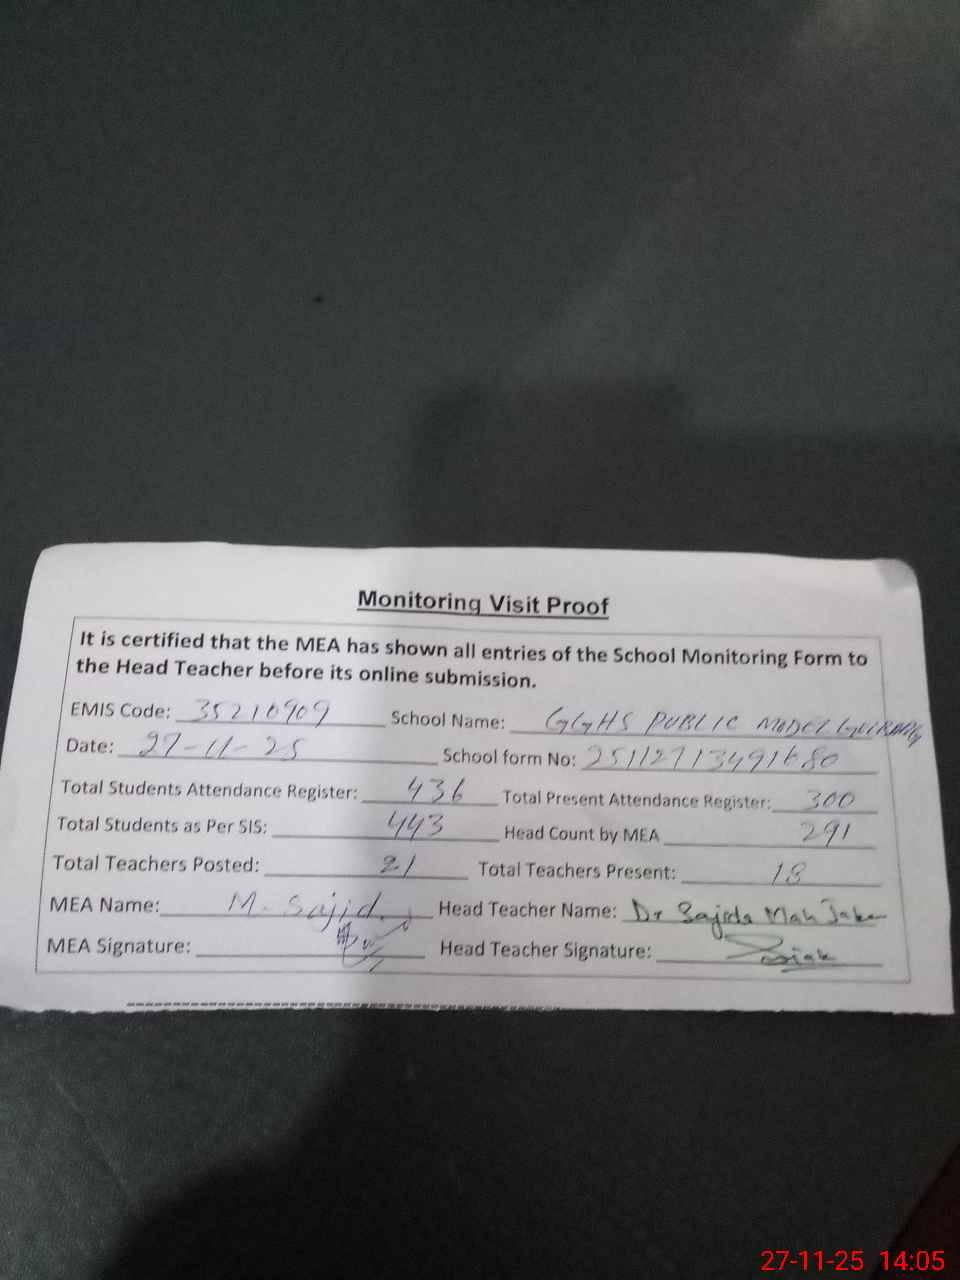 Monitoring Visit Proof
It is certified that the MEA has shown all entries of the School Monitoring Form to
the Head Teacher before its online submission.
EMIS Code: 35210909 School Name: GGHS PUBLIC MODEL
Date: 27-11-25 School form No:
Total Students Attendance Register: 436 Total Present Attendance Register: 300
Total Students as Per SIS: 443 Head Count by MEA 291
Total Teachers Posted: 21 Total Teachers Present: 18
MEA Name: M. Sajid Head Teacher Name: Dr Sajida Mah
MEA Signature: Head Teacher Signature:
27-11-25 14:05